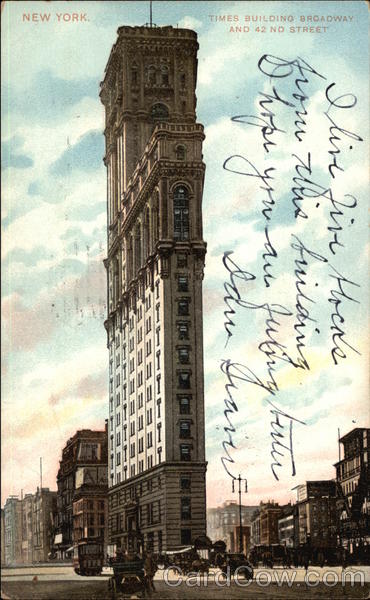 NEW YORK.
TIMES BUILDING BROADWAY
AND 42 ND STREET
I live five blocks
from this building
& hope you are feeling better
Sam
CardCow.com